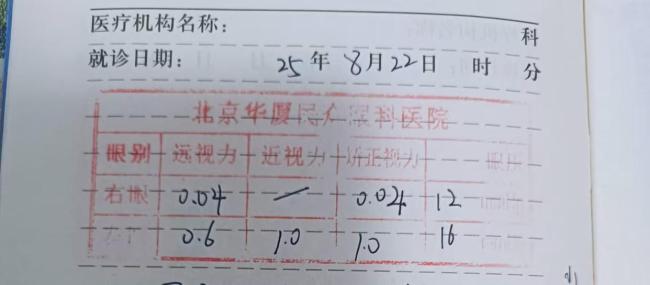 医疗机构名称: 科
就诊日期: 25年8月22日 时 分
北京华厦民众眼科医院
眼别 远视力 近视力 矫正视力 眼压
右眼 0.04 / 0.04 12
0.6 1.0 1.0 16